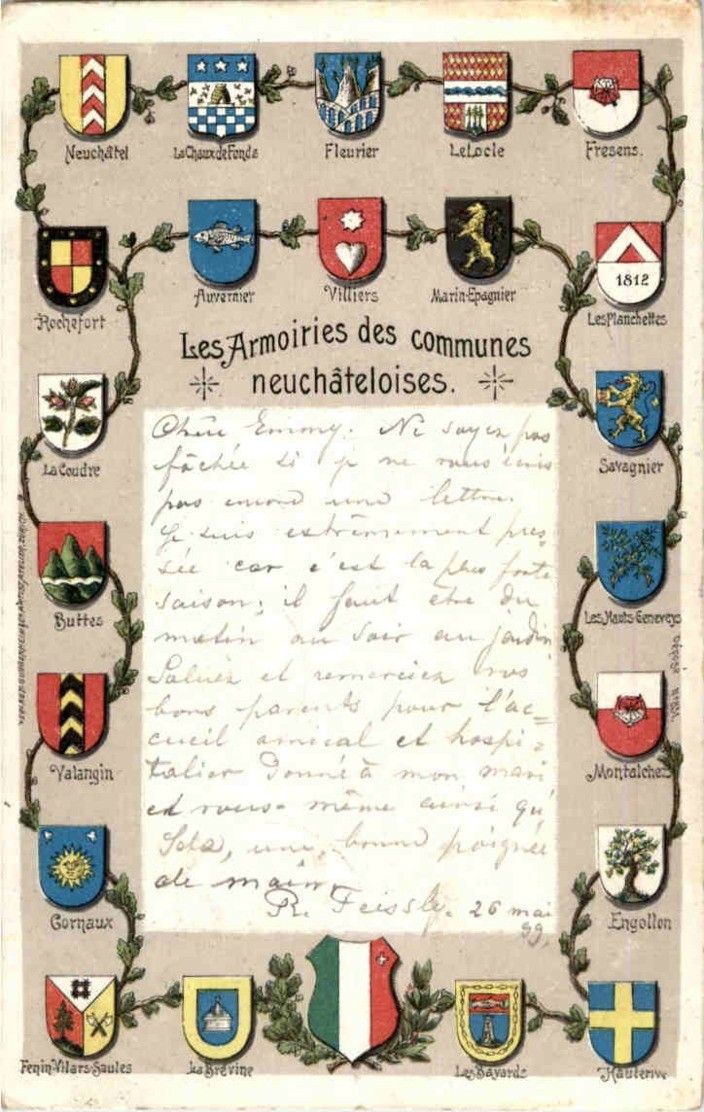 Neuchâtel La Chaux de Fonds Fleurier Le Locle Fresens.
Rochefort Auvernier Villiers Marin-Epagnier 1812 Les Planchettes
Les Armoiries des communes
neuchâteloises.
La Coudre
Savagnier
Buttes
Les Hauts-Geneveys
Valangin
Montalchez
Cornaux
Engollon
Fenin-Vilars-Saules La Brévine Les Bayards Hauterive
Chère Emmy. Ne soyez pas
fâchée si je ne vous écris
pas encore une lettre.
Je suis extrêmement pres-
sée car c'est la plus forte
saison; il faut être du
matin au soir au jardin
Saluez et remerciez vos
bons parents pour l'ac-
cueil amical et hospi-
talier donné à mon mari
et vous-même ainsi qu'
une bonne poignée
de main,
R. Feissly. 26 mai
99.